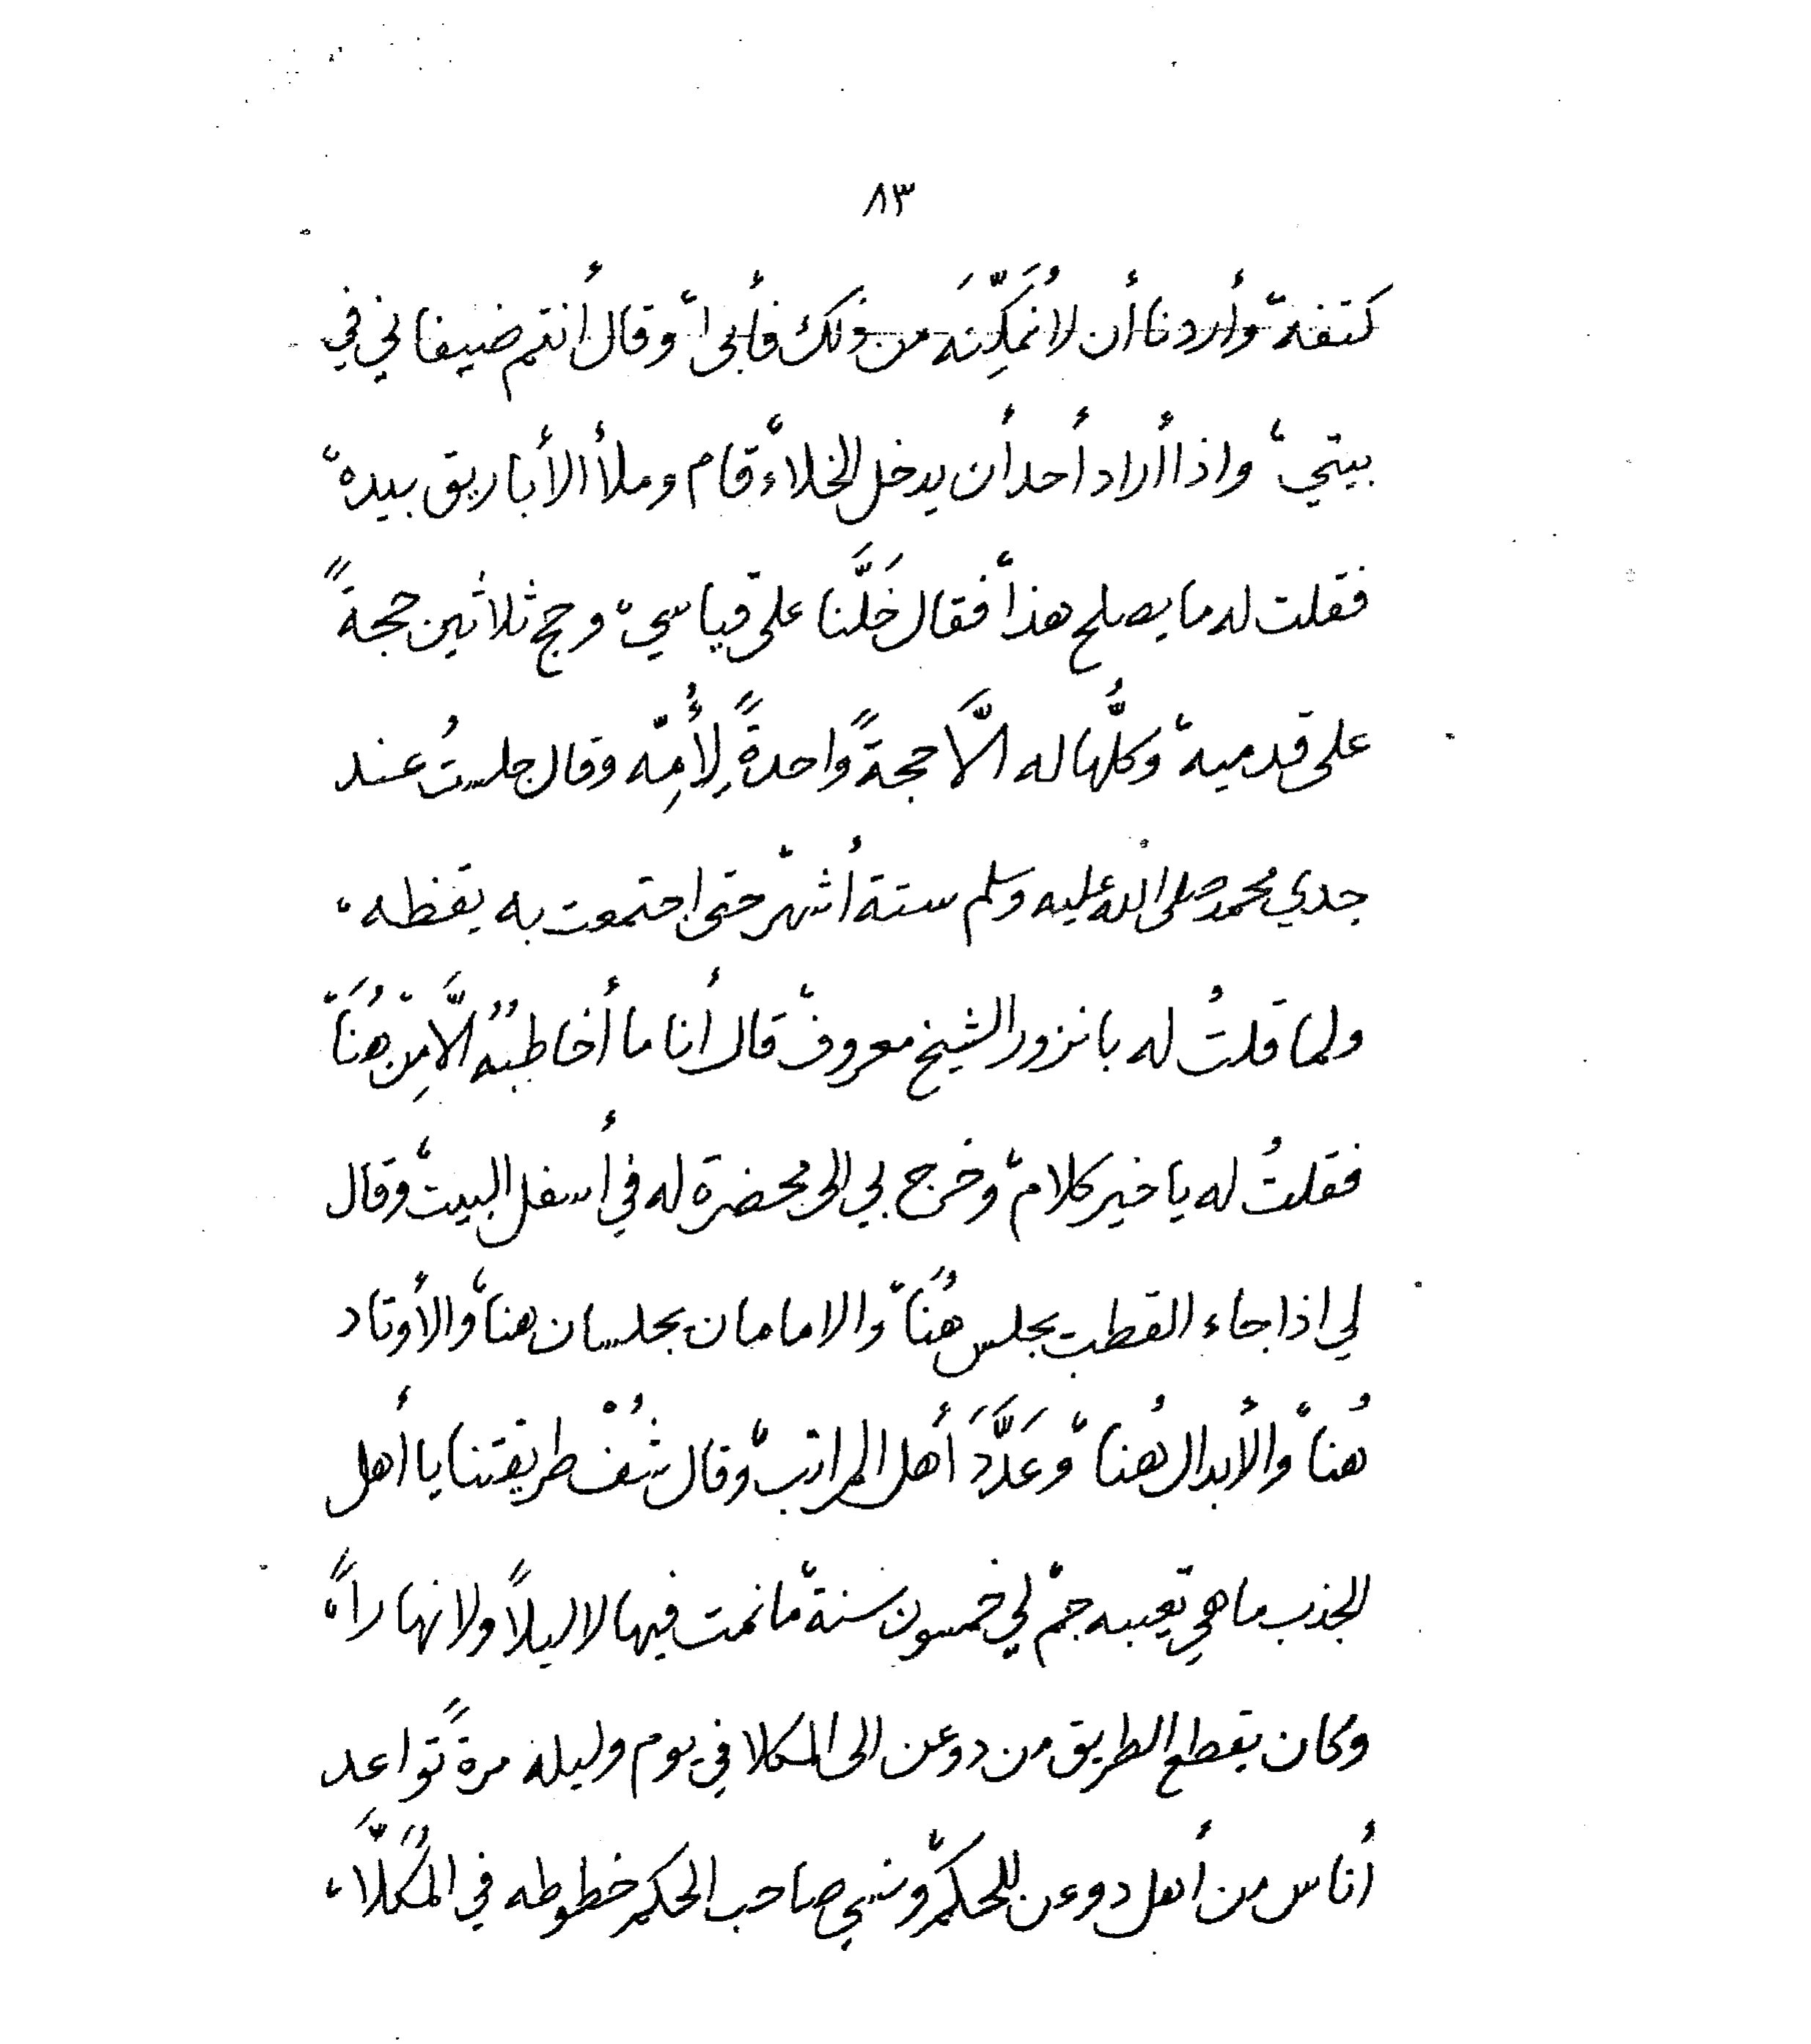 ٨٣
كتفه، وأردنا أن لا نُمَكِّنَه من ذلك فأبى، وقال أنتم ضيفاني في
بيتي، واذا أراد أحد أن يدخل الخلاء، قام وملأ الأباريق بيده،
فقلت له ما يصلح هذا، فقال خَلَّنا على قياسي، وحج ثلاثين حجةً
على قدميه، وكلُّها له الَّا حجةً واحدةً لِأُمِّه وقال جلستُ عند
جدي محمد صلى الله عليه وسلم ستة أشهر، حتى اجتمعت به يقظه،
ولما قلتُ له بانزور الشيخ معروف، قال أنا ما أخاطبُه الَّا مِنْ هُنَا،
فقلتُ له يا خير كلام، وخرج بي الى محضرة له في أسفل البيت، وقال
لي اذا جاء القطب يجلس هُنَا، والامامان يجلسان هنا، والأوتاد
هُنا، والأبدال هُنا، وعَدَّدَ أهل المراتب، وقال شُفْ طريقتنا يا أهل
الجذب ما هي تعيبه جم، لي خمسون سنة، ما نمت فيها لا ليلاً ولا نهاراً،
وكان يقطع الطريق من دوعن الى المكلا في يوم وليله مرةً تواعد
أناس من أهل دوعن للحكم، ونسي صاحب الحكم خطوطه في المُكَلَّا،